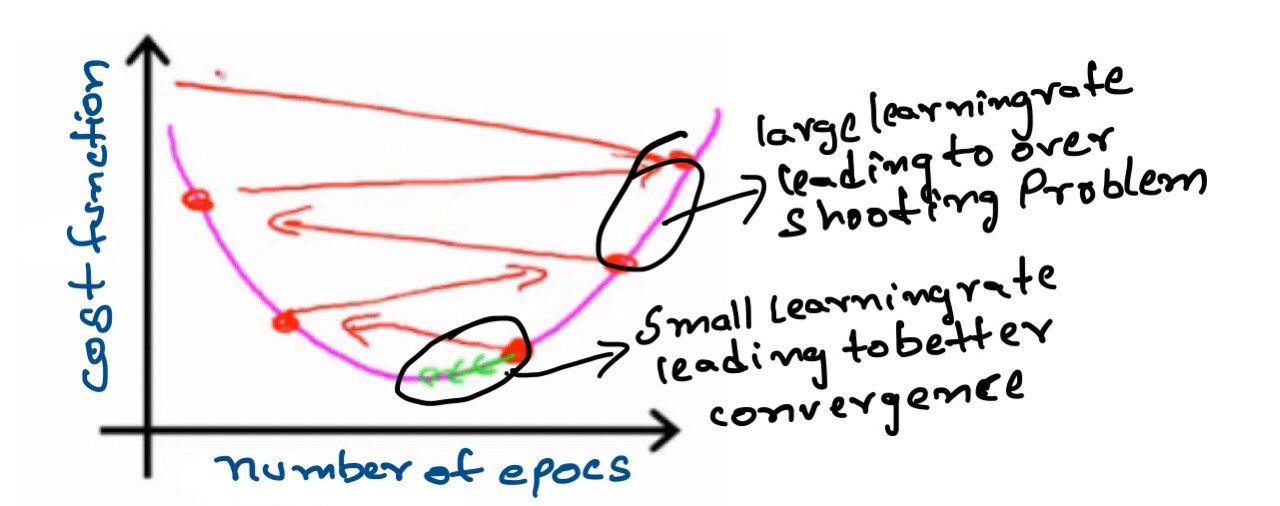 cost function
large learningrate
leading to over
shooting Problem
Small Learningrate
leading tobetter
convergence
number of epocs